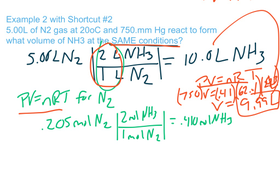 Example 2 with Shortcut #2
5.00L of N2 gas at 20oC and 750.mm Hg react to form
what volume of NH3 at the SAME conditions?
5.00L N2 | 2 L NH3 / 1 L N2 | = 10.0L NH3
PV=nRT for N2
PV=nRT
V=9.99L
.205mol N2 | 2mol NH3 / 1mol N2 | = .410mol NH3